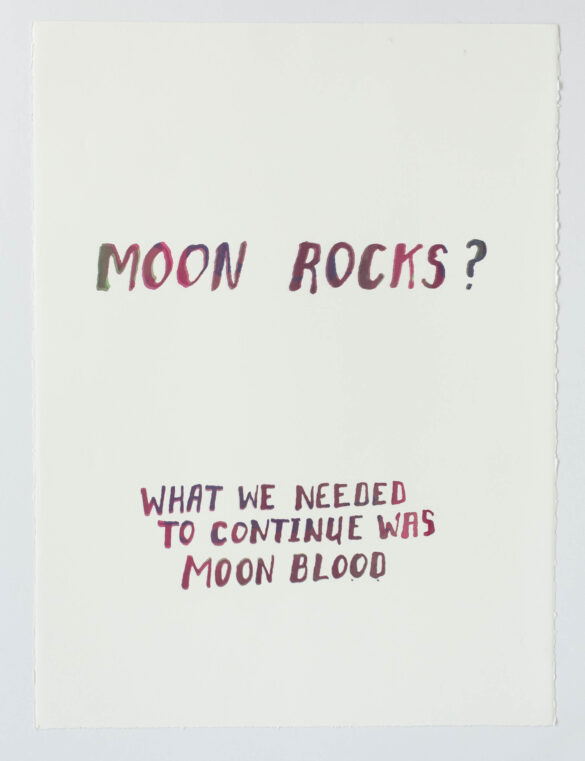 MOON ROCKS?
WHAT WE NEEDED
TO CONTINUE WAS
MOON BLOOD